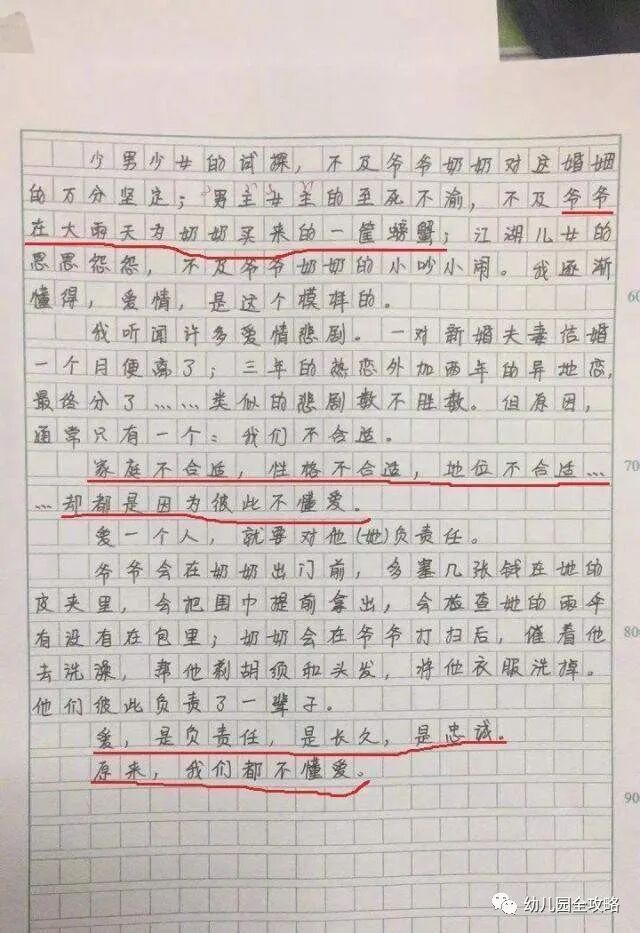 少男少女的试探，不及爷爷奶奶对这婚姻
的万分坚定；男主女主的至死不渝，不及爷爷
在大雨天为奶奶买来的一筐螃蟹；江湖儿女的
恩恩怨怨，不及爷爷奶奶的小吵小闹。我逐渐
懂得，爱情，是这个模样的。
60
我听闻许多爱情悲剧。一对新婚夫妻结婚
一个月便离了；三年的热恋外加两年的异地恋，
最终分了……类似的悲剧数不胜数。但原因，
通常只有一个：我们不合适。
家庭不合适，性格不合适，地位不合适…
70
…却都是因为彼此不懂爱。
爱一个人，就要对他(她)负责任。
爷爷会在奶奶出门前，多塞几张钱在她的
皮夹里，会把围巾提前拿出，会检查她的雨伞
有没有在包里；奶奶会在爷爷打扫后，催着他
80
去洗澡，帮他剃胡须和头发，将他衣服洗掉。
他们彼此负责了一辈子。
爱，是负责任，是长久，是忠诚。
原来，我们都不懂爱。
90
幼儿园全攻略